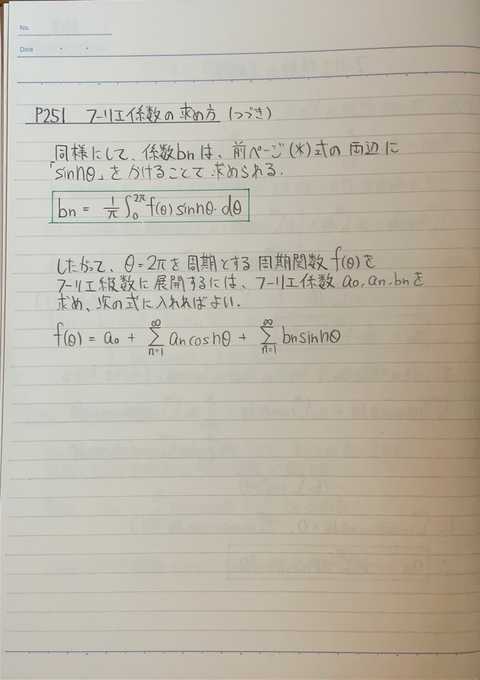 No.
Date
P251 フーリエ係数の求め方 (つづき)
同様にして、係数bnは、前ページ(*)式の両辺に
「sinnθ」をかけることで求められる.
bn = 1/π ∫₀^2π f(θ) sin nθ・dθ
したがって、θ=2πを周期とする周期関数f(θ)を
フーリエ級数に展開するには、フーリエ係数a₀,an,bnを
求め、次の式に入れればよい.
f(θ) = a₀ + ∞Σn=1 an cos nθ + ∞Σn=1 bn sin nθ